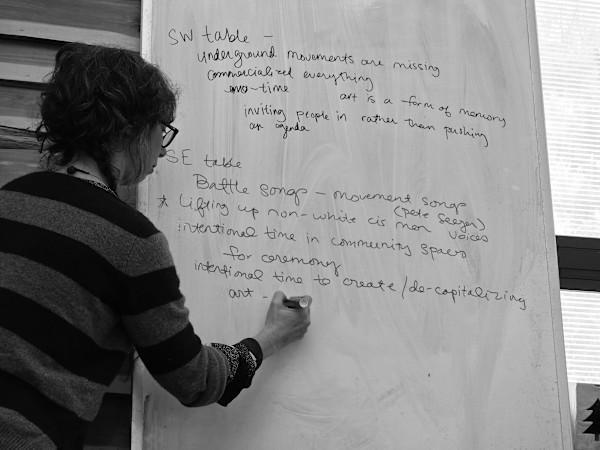 SW table -
underground movements are missing
commercialized everything
- time
art is a form of memory
inviting people in rather than pushing
an agenda
SE table
Battle songs - movement songs
(Pete Seeger)
* Lifting up non-white cis men voices
intentional time in community spaces
for ceremony
intentional time to create/de-capitalizing
art -